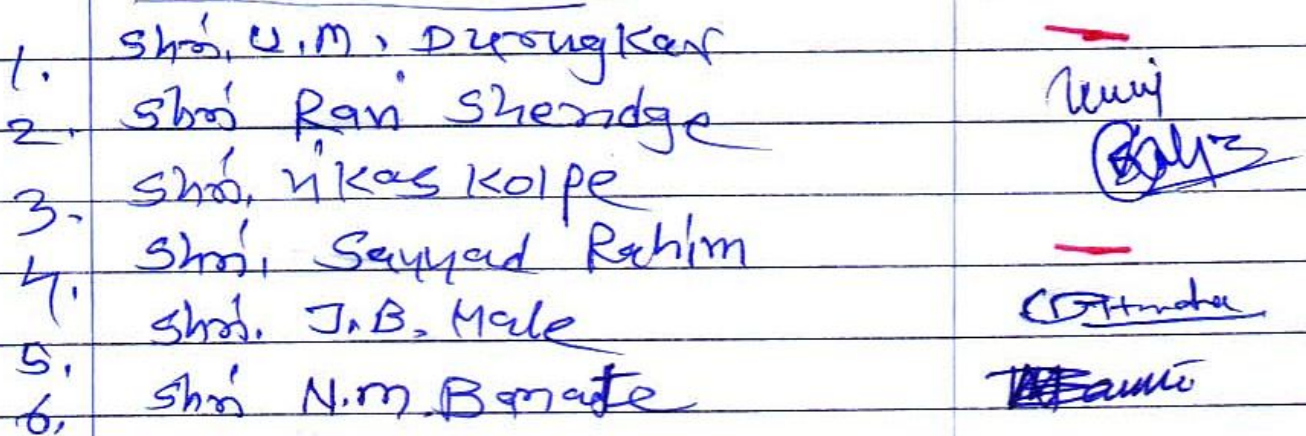 1. Shri. U.M. Durugkar
2. Shri Ravi Shendge
3. Shri. Vikas Kolpe
4. Shri. Sayyad Rahim
5. Shri. J.B. Male
6. Shri N.M. Bomate